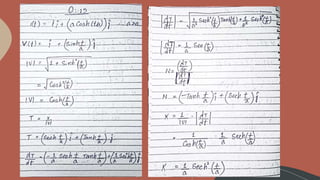 Q.12
r(t) = ti + (a Cosh(t/a)) j
V(t) = i + (Sinh t/a) j
|V| = √1 + Sinh²(t/a)
= √Cosh²(t/a)
|V| = Cosh(t/a)
T = V/|V|
T = (Sech t/a) i + (Tanh t/a) j
dT/dt = (-1/a Sech t/a Tanh t/a) i + (1/a Sech² t/a) j
|dT/dt| = √1/a² Sech²(t/a) Tanh²(t/a) + 1/a² Sech⁴(t/a)
|dT/dt| = 1/a Sech(t/a)
N = (dT/dt)/|dT/dt|
N = (-Tanh t/a) i + (Sech t/a) j
K = 1/|V| · |dT/dt|
= 1/Cosh(t/a) · 1/a Sech(t/a)
K = 1/a Sech²(t/a)